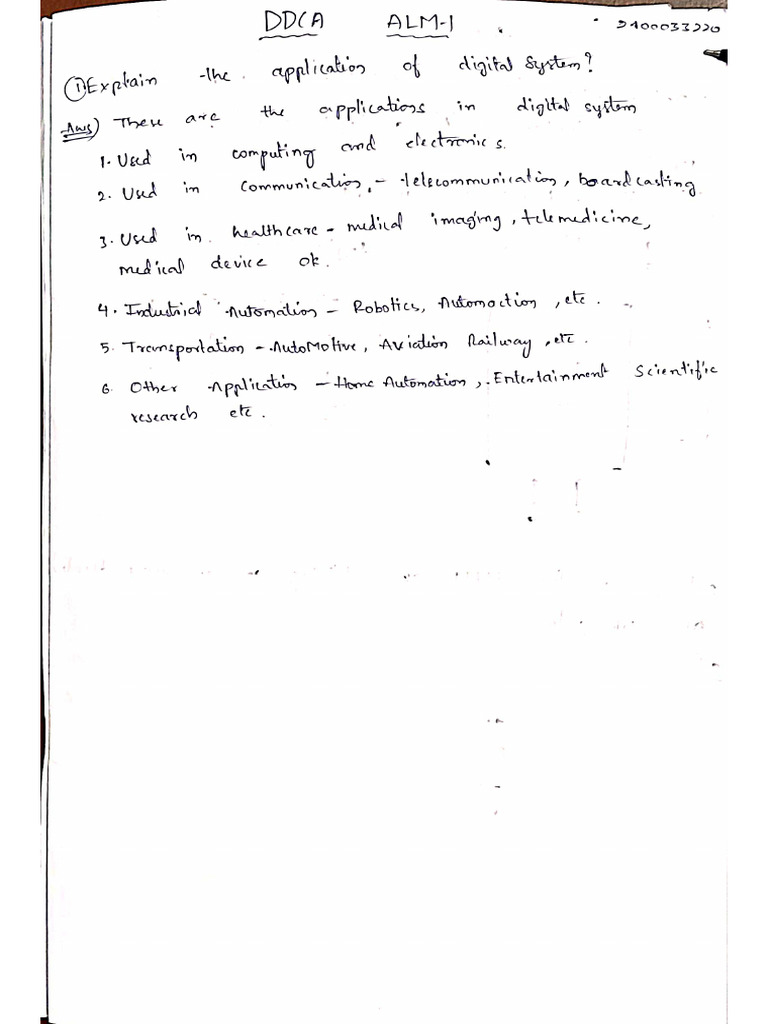 DDCA ALM-1 2400033220
① Explain the application of digital System?
Ans) These are the applications in digital system
1. Used in computing and electronics.
2. Used in communication, - telecommunication, boardcasting
3. Used in healthcare - medical imaging, telemedicine,
medical device ok.
4. Industrial Automation - Robotics, Automoction, etc.
5. Transportation - AutoMotive, Aviation Railway, etc.
6 Other Application - Home Automation, Entertainment Scientific
research etc.